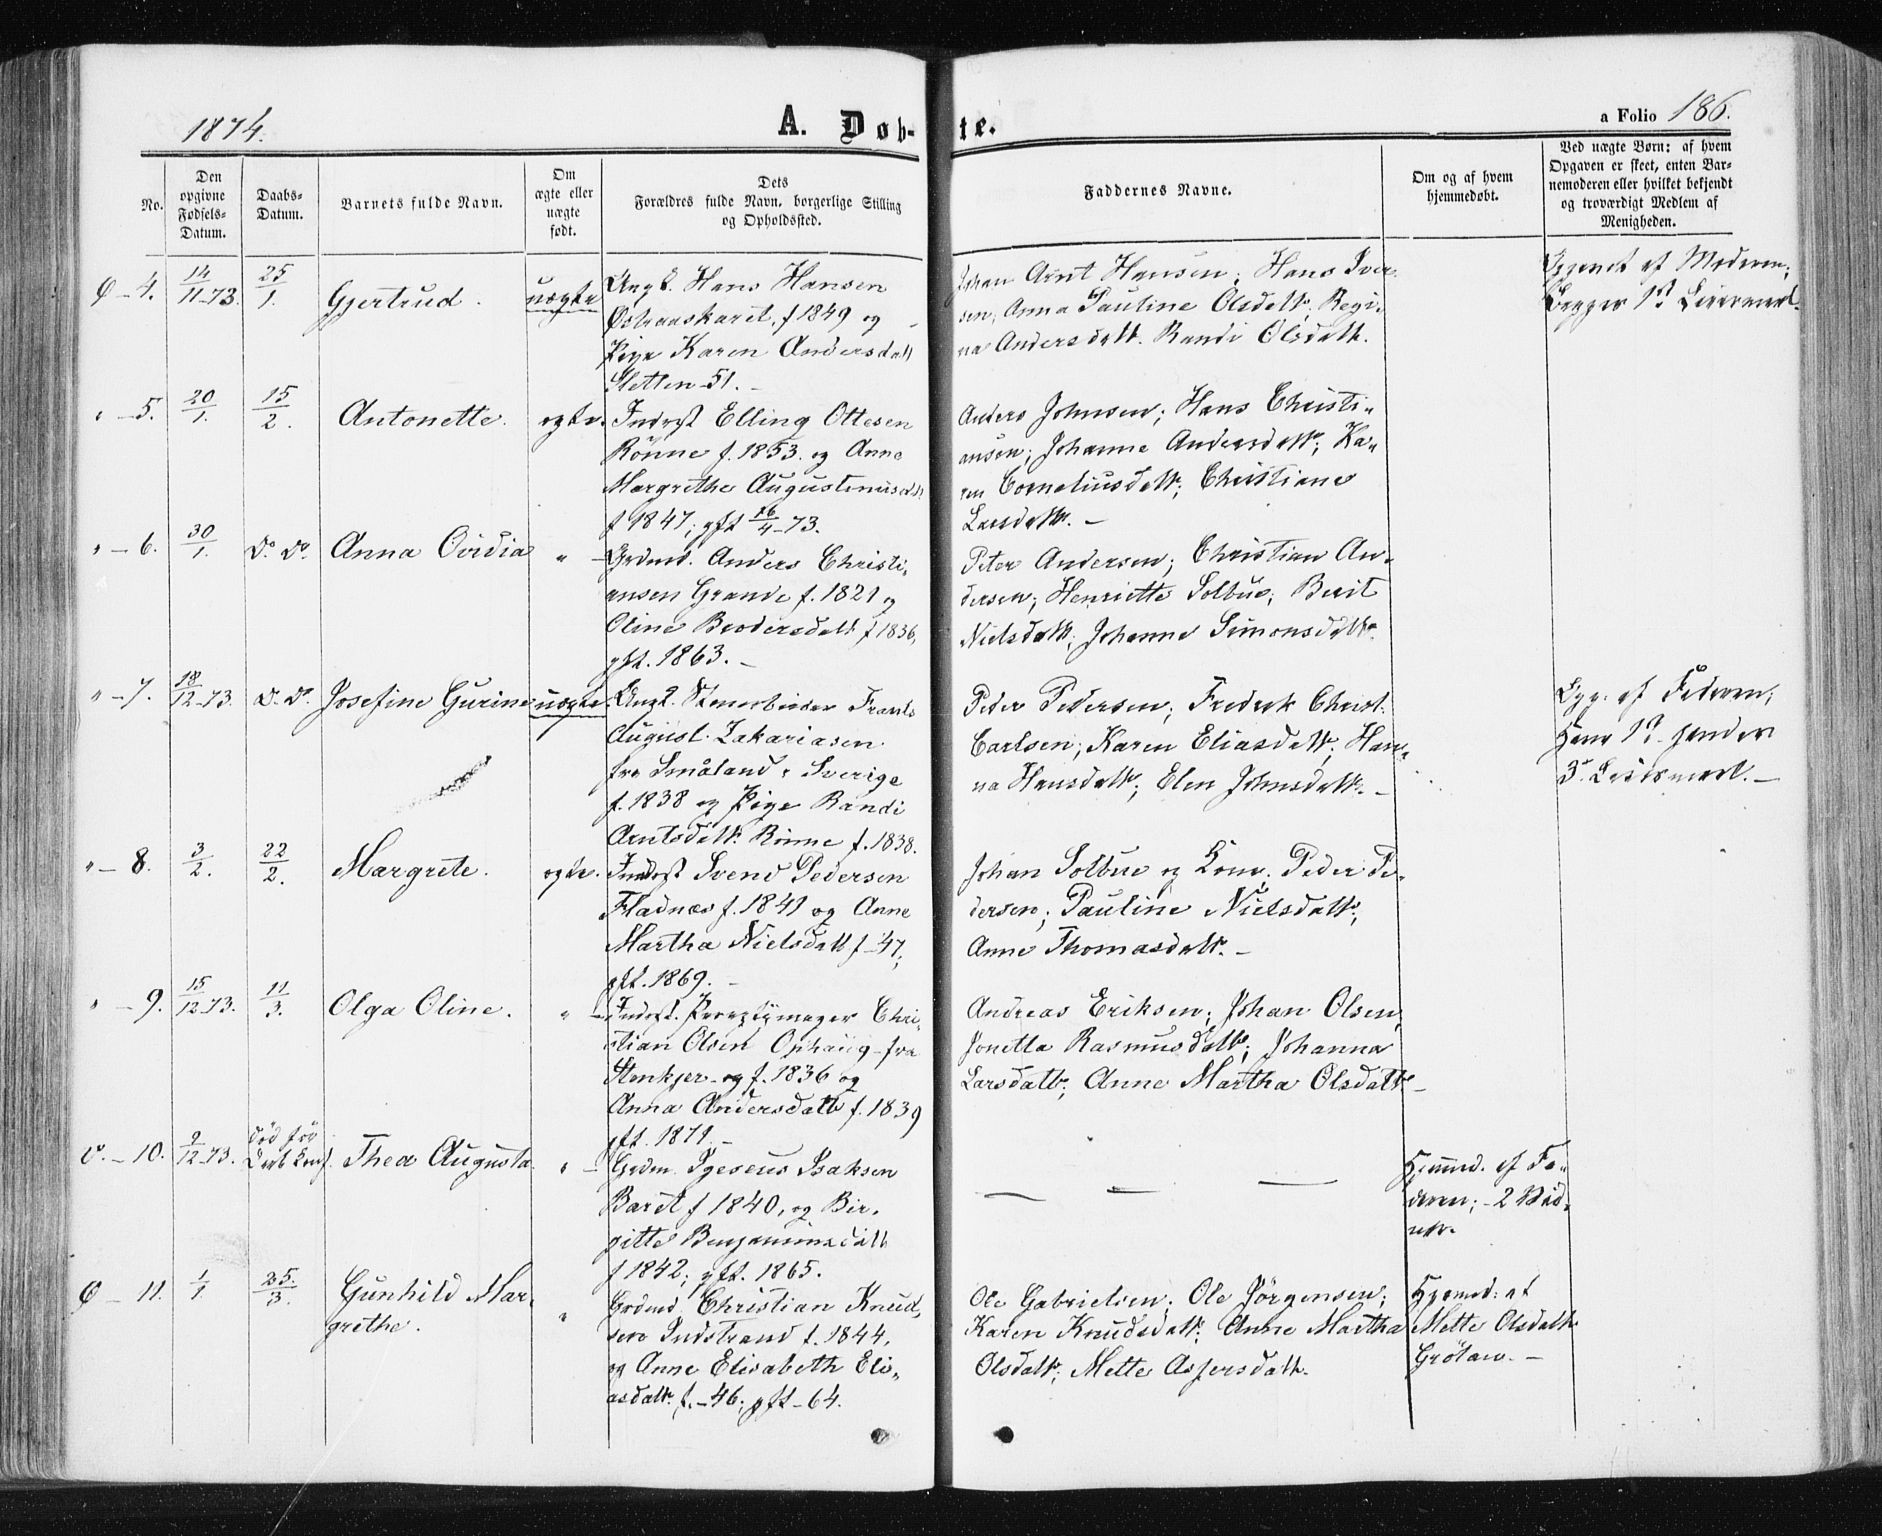 1874.
A. Døb-
te.
a Folio 186.
No.
Den
opgivne
Fødsels-
Datum.
Daabs-
Datum.
Barnets fulde Navn.
Om
ægte eller
uægte
født.
Dets
Forældres fulde Navn, borgerlige Stilling
og Opholdssted.
Faddernes Navne.
Om og af hvem
hjemmedøbt.
Ved uægte Børn: af hvem
Opgaven er skeet, enten Bar-
nemoderen eller hvilket bekjendt
og troværdigt Medlem af
Menigheden.
Ø – 4.
14/11-73.
25/1.
Gjertrud.
uægte
Ungk. Hans Hansen
f 1849 og
Pige Karen Andersdatt
Sletten - 51. –
Johan Arnt Hansen; Hans Iver-
sen; Anna Pauline Olsdatt; Regi-
na Andersdatt. Randi Olsdatt.
Opgivet af Moderen;
Begges 1st Leiermaal.
" – 5.
20/1.
15/2.
Antonette.
ægte.
Inderst Elling Ottesen
Rønne f. 1853. og Anne
Margrethe Augustinusdtt
f 1847; gft 16/4-73.
Anders Johnsen; Hans Christi-
ansen; Johanne Andersdatt; Ka-
ren Corneliusdatt; Christiane
Larsdatt. –
" – 6.
30/1.
Do. Do.
Anna Ovidia
" –
Grdmd. Anders Christi-
ansen Grande f. 1821 og
Oline Brodersdatt f 1836,
gft. 1863. –
Peter Andersen; Christian An-
dersen; Henriette Solbue; Berit
Nielsdatt; Johanne Simonsdatt.
" – 7.
18/12-73.
Do. Do.
Josefine Gurine
uægte.
Ungk. Frants
August Zakariasen
fra Småland i Sverige
f. 1838 og Pige Randi
Arntsdatt Rønne f. 1838.
Peder Pedersen; Fredrik Christ.
Carlsen; Karen Eliasdatt; Han-
na Hansdatt; Elen Johnsdatt. –
Opg. af Faderen;
Hans 1st hendes
3e Leiermaal. –
" – 8.
3/2.
22/2.
Margrete.
ægte.
Inderst Svend Pedersen
Fladnes f. 1841 og Anne
Martha Nielsdatt f – 47;
gft. 1869. –
Johan Solbue og Kone, Peder Pe-
dersen; Pauline Nielsdatt;
Anne Thomasdatt. –
" – 9.
15/12-73.
11/3.
Olga Oline.
" –
Inderst. Chri-
stian Olsen Ophaug – fra
Stenkjer – og f. 1836 og
Anna Andersdatt f. 1839
gft. 1871. –
Andreas Eriksen; Johan Olsen,
Jonetta Rasmusdatt; Johanna
Larsdatt; Anne Martha Olsdatt –
– 10.
9/12-73.
død før
Thea Augusta.
" –
Grdm. Isaksen
f 1840, og Bir-
gitte Benjaminsdatt
f 1842; gft. 1865.
— — —
Hjemmed. af Fa-
deren; – 2 Vid-
ner.
Ø – 11.
1/1
25./3.
Gunhild Mar-
grethe.
"
Grdmd. Christian Knud-
sen Indstrand f. 1844,
og Anne Elisabeth Eli-
asdatt. f. – 46; gft – 64.
Ole Gabrielsen; Ole Jørgensen;
Karen Knudsdatt; Anne Martha
Olsdatt; Mette Aspersdatt.
Hjemmd: af
Mette Olsdatt
Grøtan. –